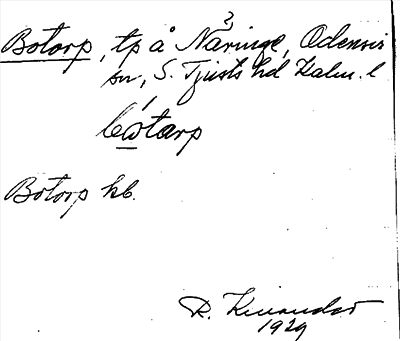 Botorp, tp å Näringe, Odensvi
sn, S. Tjusts hd, Kalm. l
bo̲tarp
Botorp kb.
R. Kinander
1929